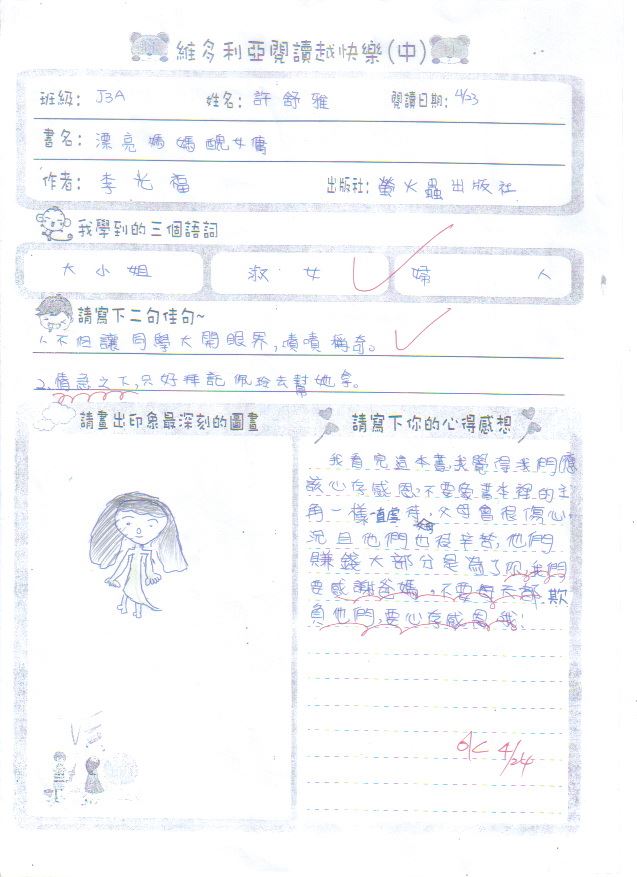 維多利亞閱讀越快樂(中)
班級: J3A 姓名: 許舒雅 閱讀日期: 4/23
書名: 漂亮媽媽醜女傳
作者: 李光福 出版社: 螢火蟲出版社
我學到的三個語詞
大小姐 淑女 婦人
請寫下二句佳句~
1、不但讓同學大開眼界,嘖嘖稱奇。
2、情急之下,只好拜託佩玲去幫她拿。
請畫出印象最深刻的圖畫 請寫下你的心得感想
我看完這本書,我覺得我們應
該心存感恩,不要象書生裡的主
角一樣一直虐待,父母會很傷心,
況且他們也很辛苦,他們
賺錢大部分是為了你,我們
要感謝爸媽。不要每天都欺
負他們,要心存感恩哦!
OK 4/24